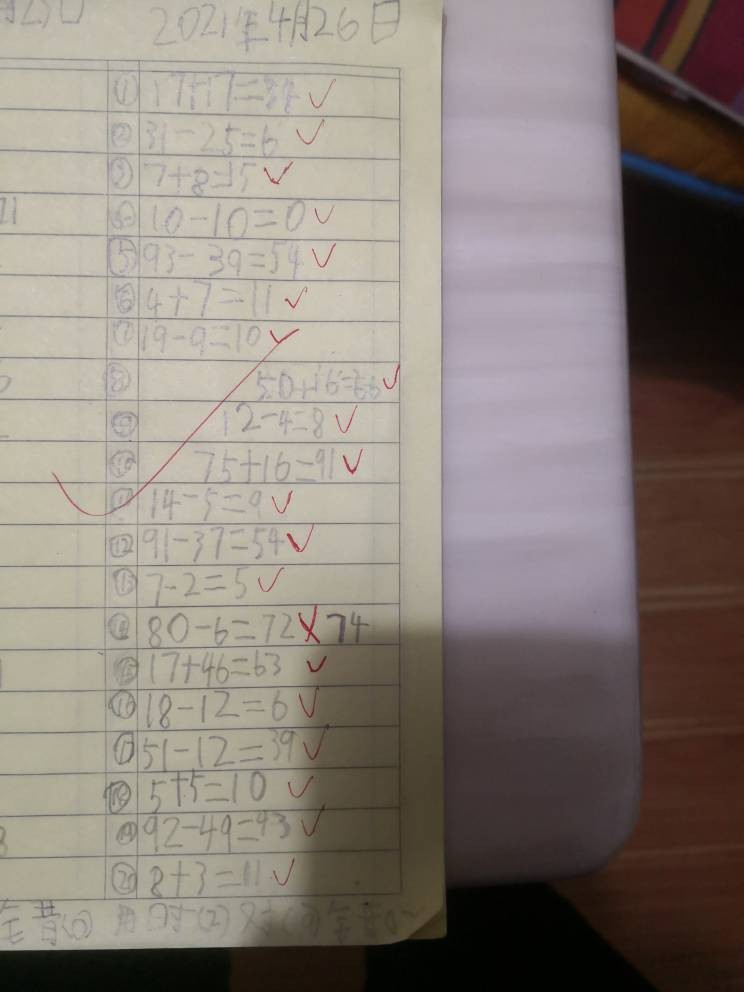 2021年4月26日
① 17+17=34 ✓
② 31-25=6 ✓
③ 7+8=15 ✓
④ 10-10=0 ✓
⑤ 93-39=54 ✓
⑥ 4+7=11 ✓
⑦ 19-9=10 ✓
⑧ 50+16=66 ✓
⑨ 12-4=8 ✓
⑩ 75+16=91 ✓
⑪ 14-5=9 ✓
⑫ 91-37=54 ✓
⑬ 7-2=5 ✓
⑭ 80-6=72 ✗ 74
⑮ 17+46=63 ✓
⑯ 18-12=6 ✓
⑰ 51-12=39 ✓
⑱ 5+5=10 ✓
⑲ 92-49=43 ✓
⑳ 8+3=11 ✓